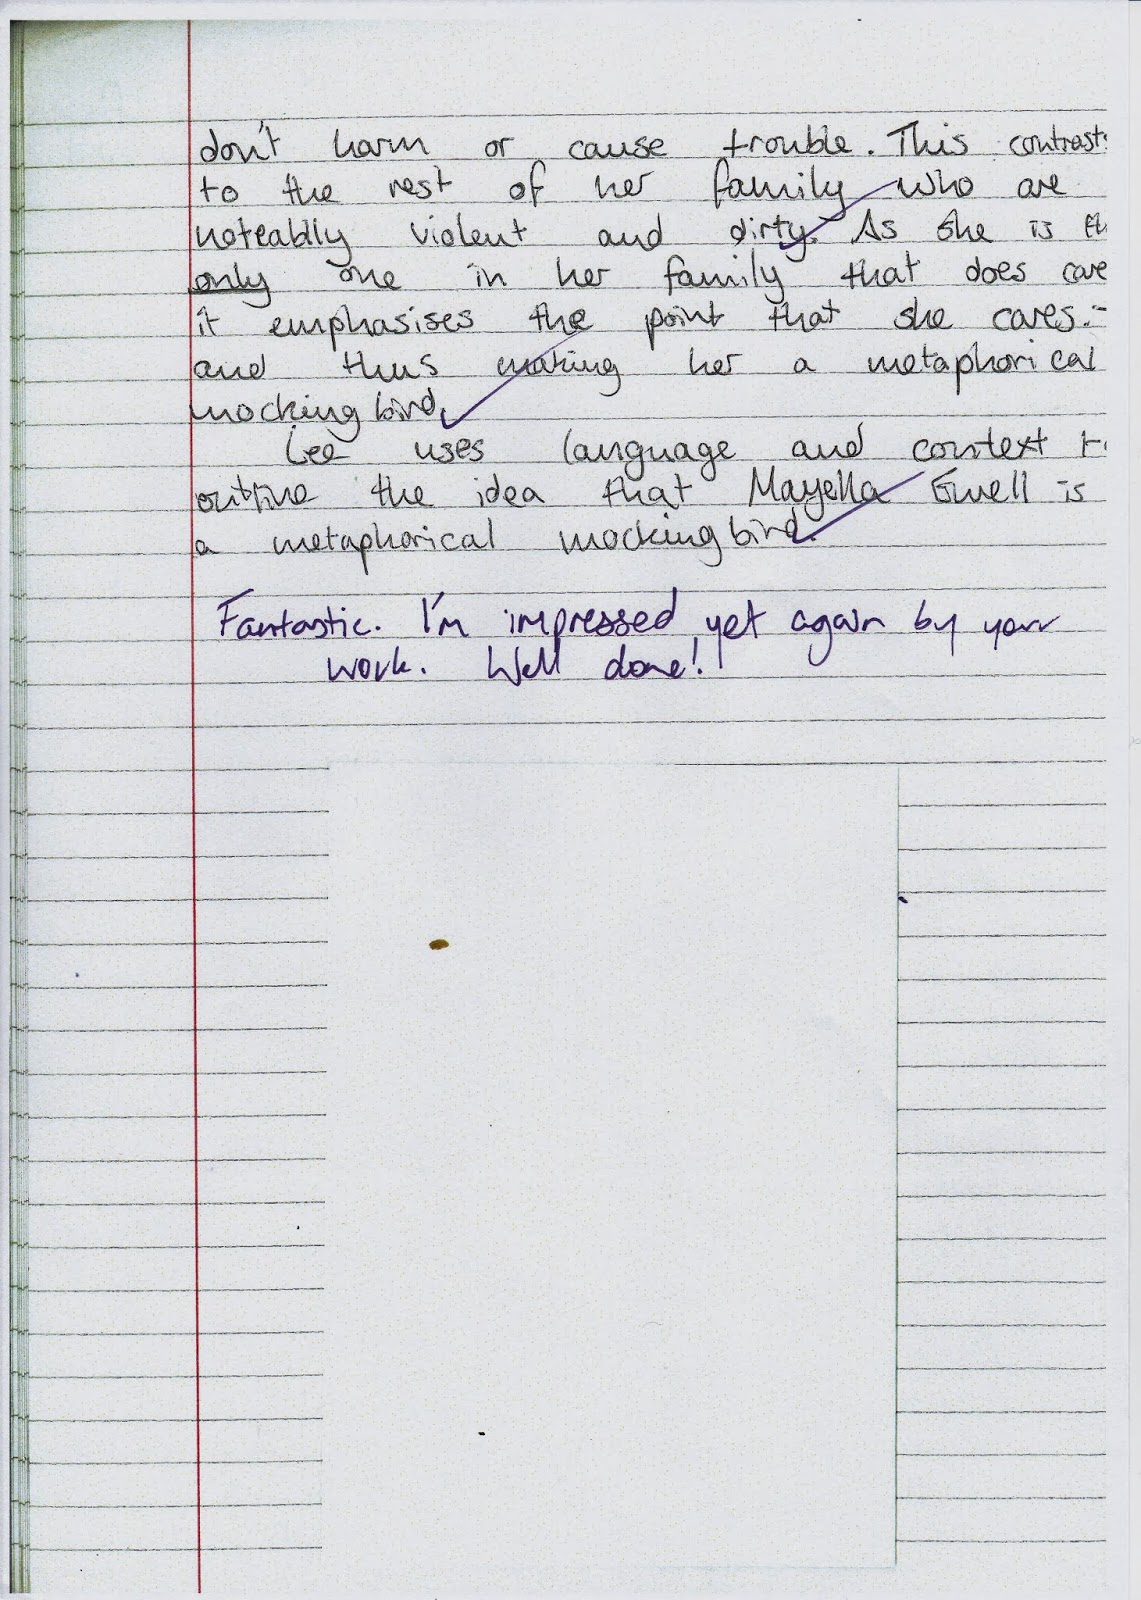 don't harm or cause trouble. This contrast
to the rest of her family who are
noteablly violent and dirty. As she is th
only one in her family that does care
it emphasises the point that she cares.-
and thus making her a metaphorical
mocking bird.
Lee uses language and context t
outline the idea that Mayella Ewell is
a metaphorical mocking bird.
Fantastic. I'm impressed yet again by your
work. Well done!!